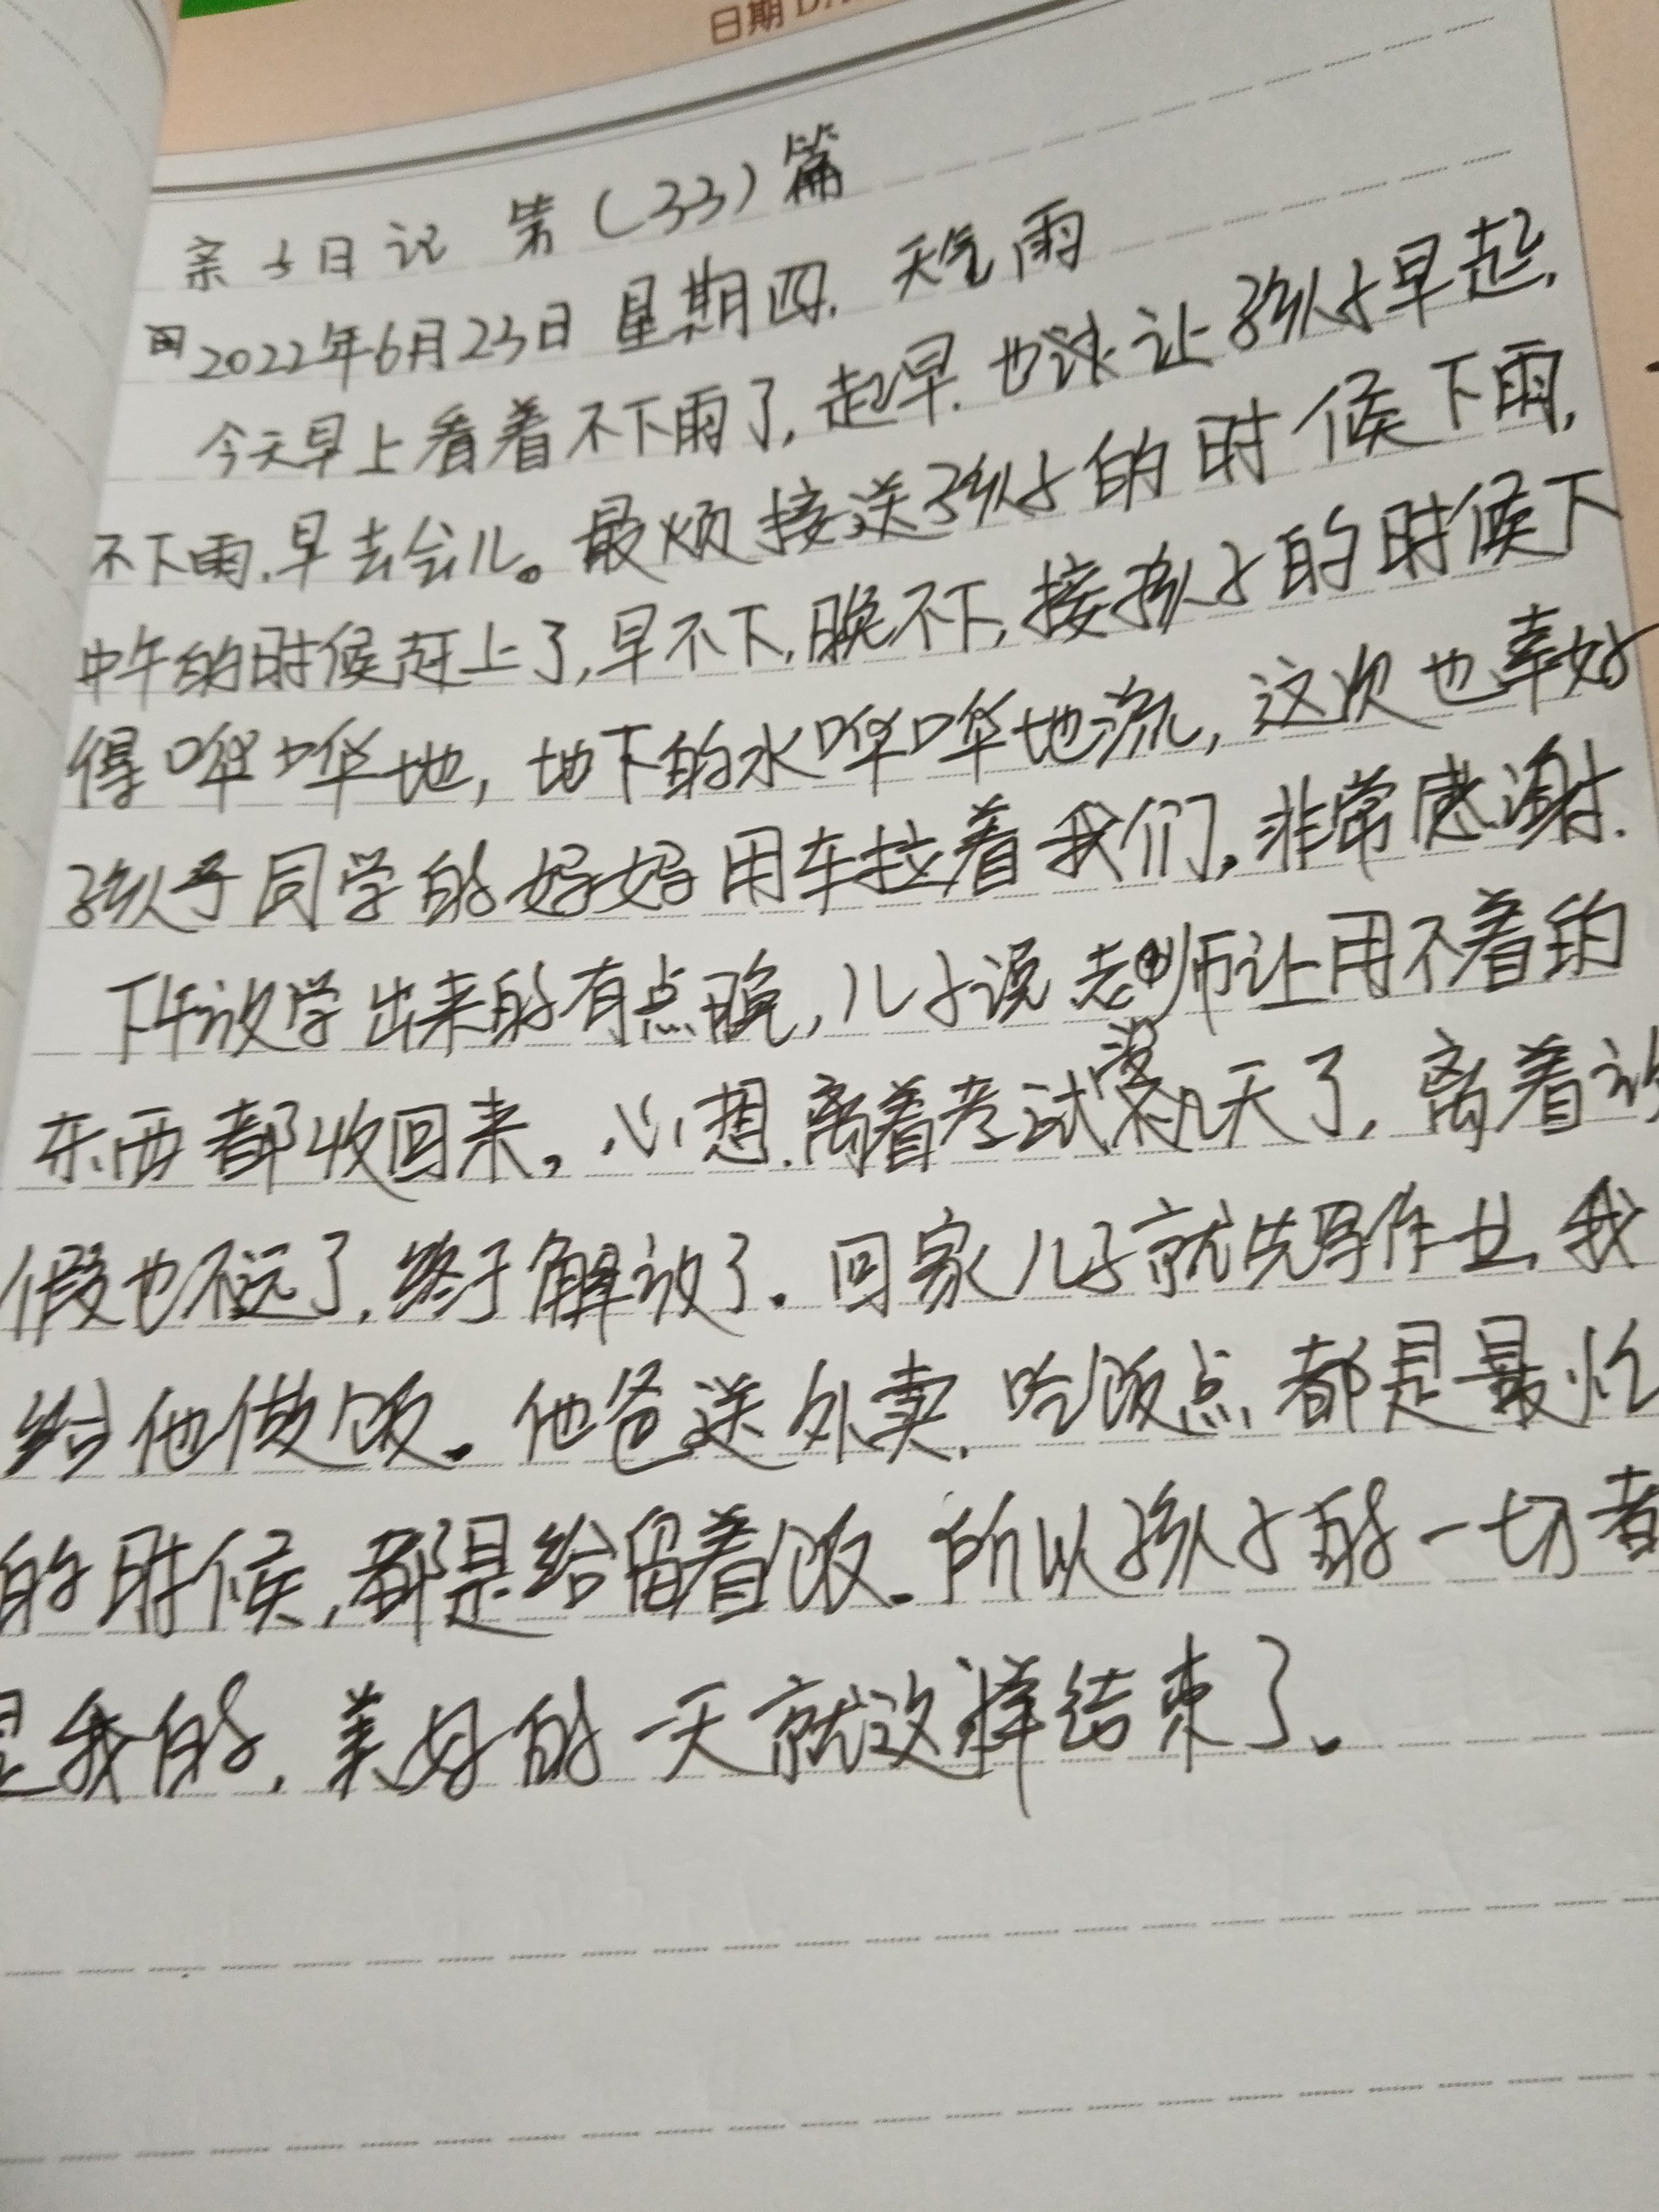 日期
亲子日记 第(33)篇
2022年6月23日 星期四. 天气雨
今天早上看着不下雨了,起早.也让孩子早起.
不下雨.早去会儿。最烦接送孩子的时候下雨,
中午的时候赶上了,早不下,晚不下,接孩子的时候下
得哗哗地,地下的水哗哗地流,这次也幸好
孩子同学的妈妈用车拉着我们,非常感谢.
下午放学出来的有点晚,儿子说老师让用不着的
东西都收回来。心想.离着考试没几天了,离着
假也不远了,终于解放了.回家儿子就先写作业,我
给他做饭.他爸送外卖,吃饭点都是最忙
的时候,都是给留着饭.所以孩子的一切
是我的,美好的一天就这样结束了.